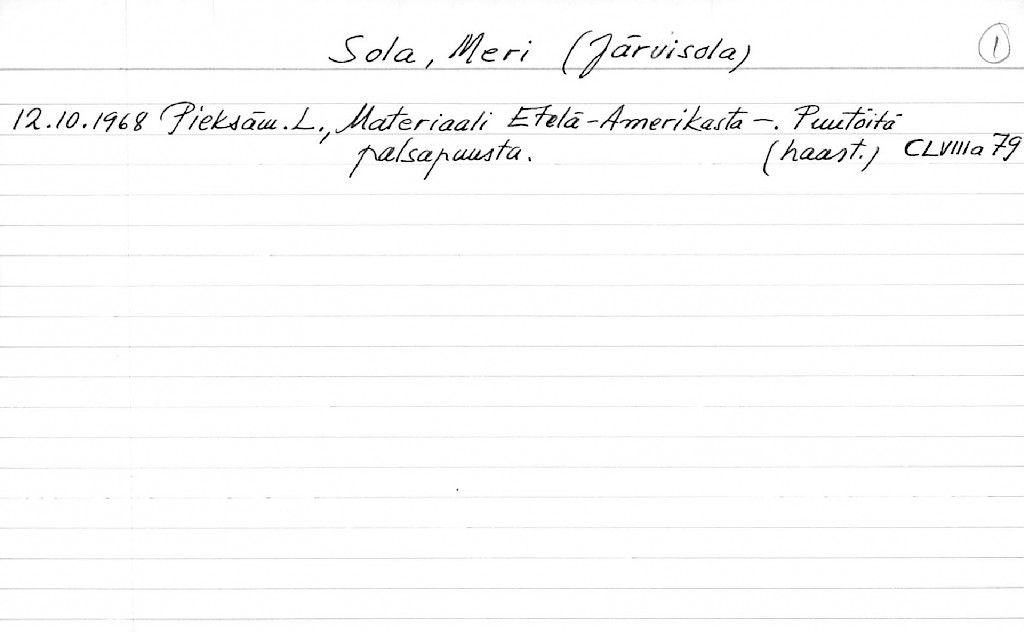 Sola, Meri (Järvisola) 1
12.10.1968 Pieksäm. L., Materiaali Etelä-Amerikasta –. Puutöitä
palsapuusta. (haast.) CLVIIIa 79